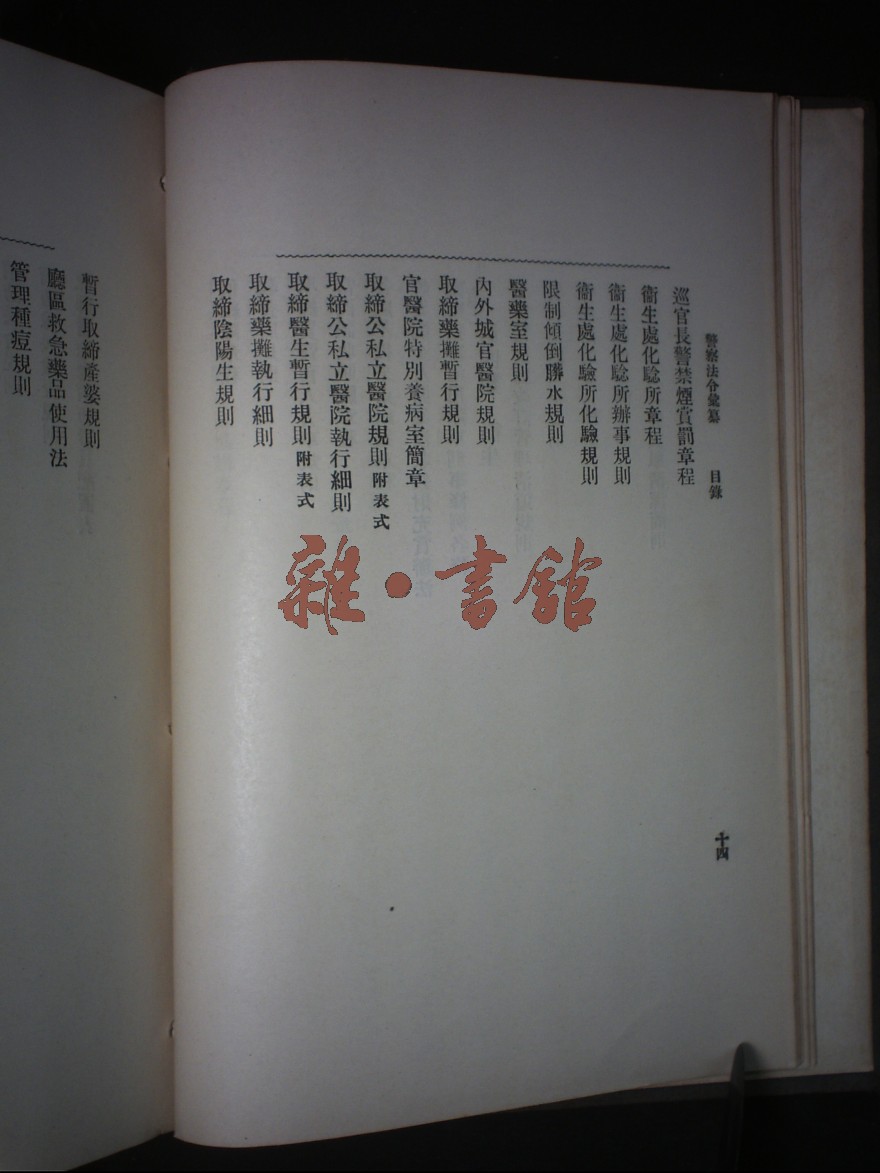 警察法令彙纂 目錄
十四
巡官長警禁煙賞罰章程
衞生處化騐所章程
衞生處化騐所辦事規則
衞生處化驗所化驗規則
限制傾倒髒水規則
醫藥室規則
內外城官醫院規則
取締藥攤暫行規則
官醫院特別養病室簡章
取締公私立醫院規則 附表式
取締公私立醫院執行細則
取締醫生暫行規則 附表式
取締藥攤執行細則
取締陰陽生規則
暫行取締產婆規則
廳區救急藥品使用法
管理種痘規則
雜·書館